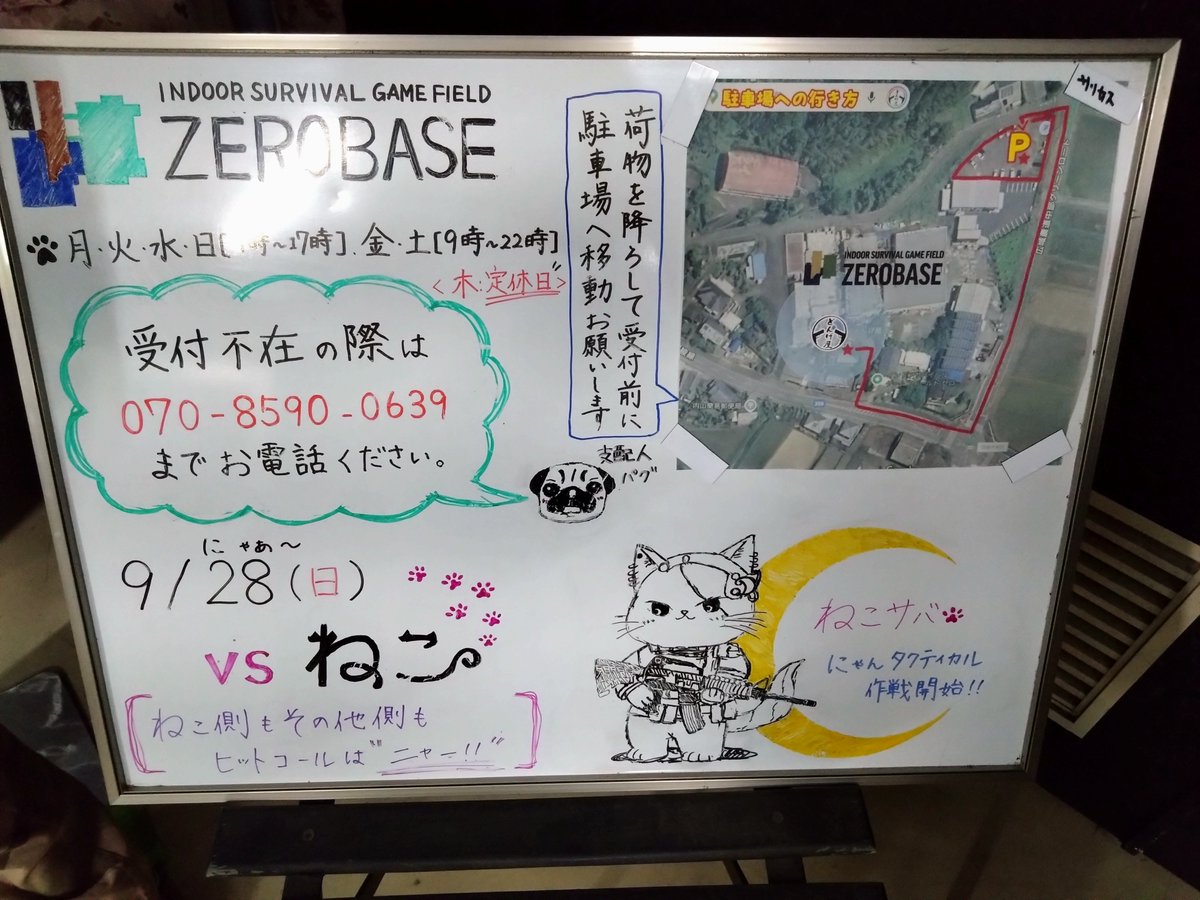 INDOOR SURVIVAL GAME FIELD
ZEROBASE
月・火・水・日[9時~17時]. 金・土[9時~22時]
<木:定休日>
受付不在の際は
070-8590-0639
までお電話ください。
荷物を降ろして受付前に
駐車場へ移動お願いします
支配人
パグ
駐車場への行き方
P
INDOOR SURVIVAL GAME FIELD
ZEROBASE
にゃあ~
9/28(日)
vs ねこ
ねこ側もその他側も
ヒットコールは"ニャー!!"
ねこサバ
にゃんタクティカル
作戦開始!!